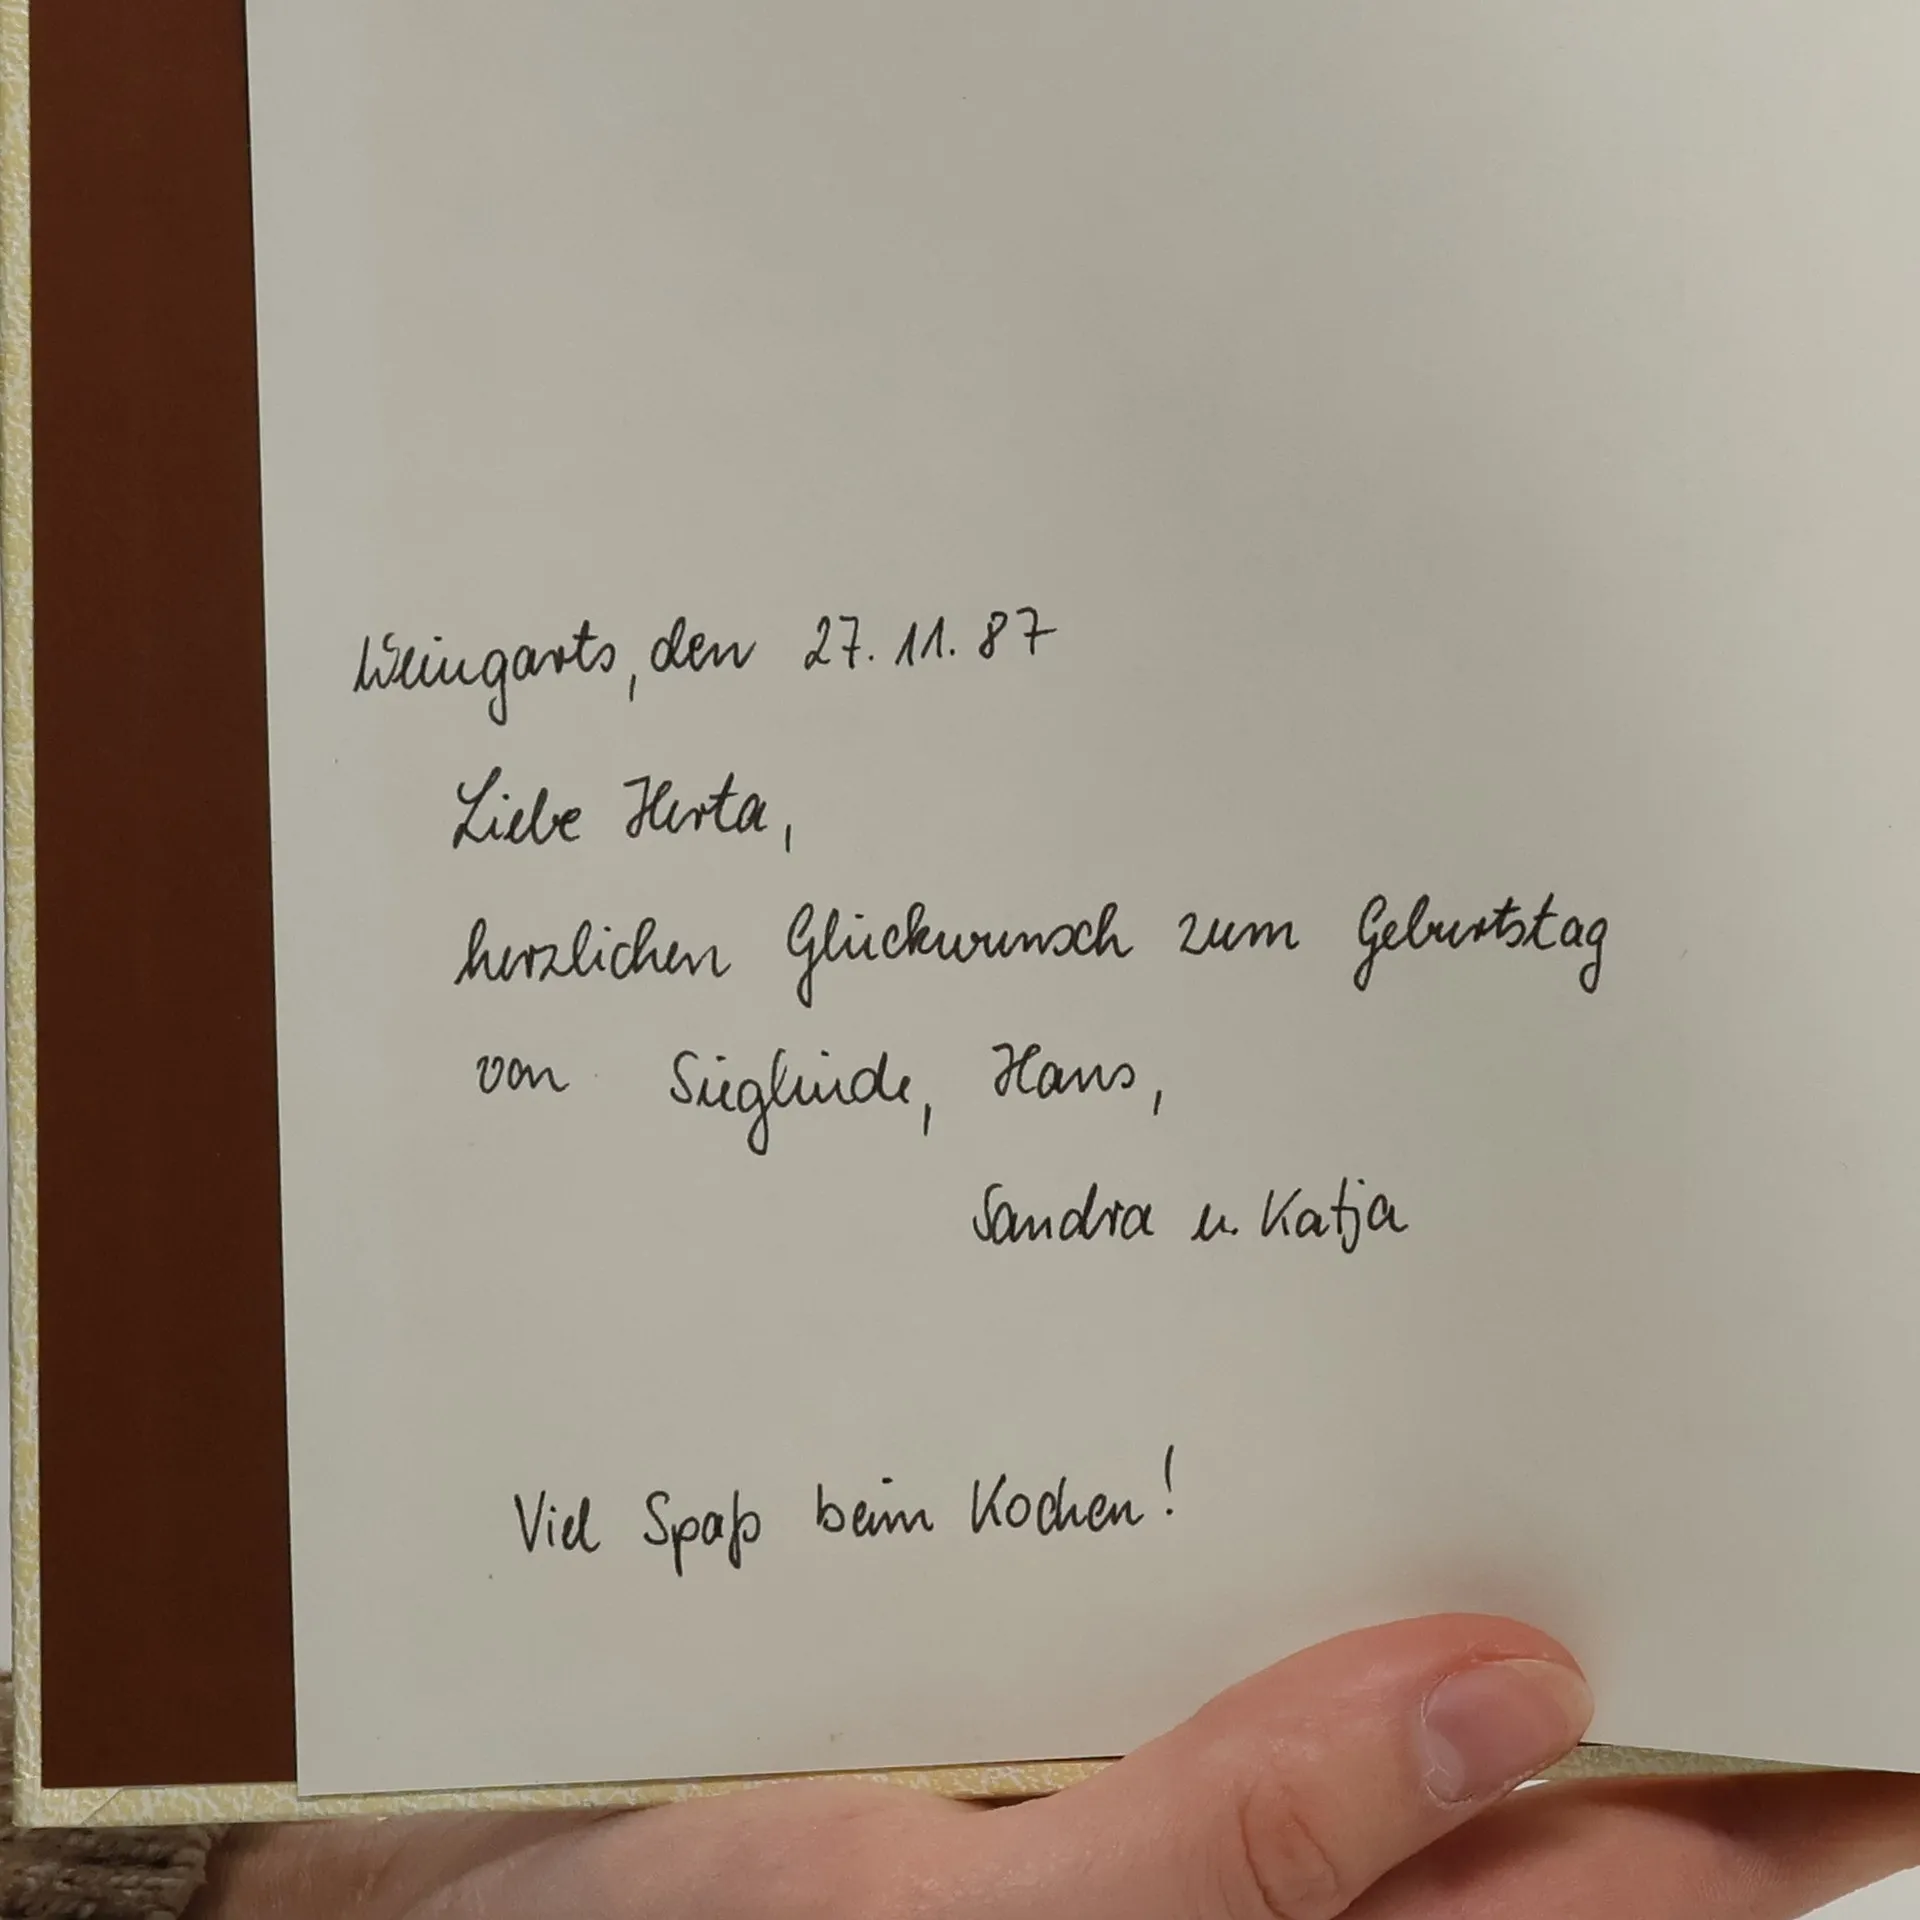 Weingarts, den 27.11.87
Liebe Herta,
herzlichen Glückwunsch zum Geburtstag
von Sieglinde, Hans,
Sandra u. Katja
Viel Spaß beim Kochen!